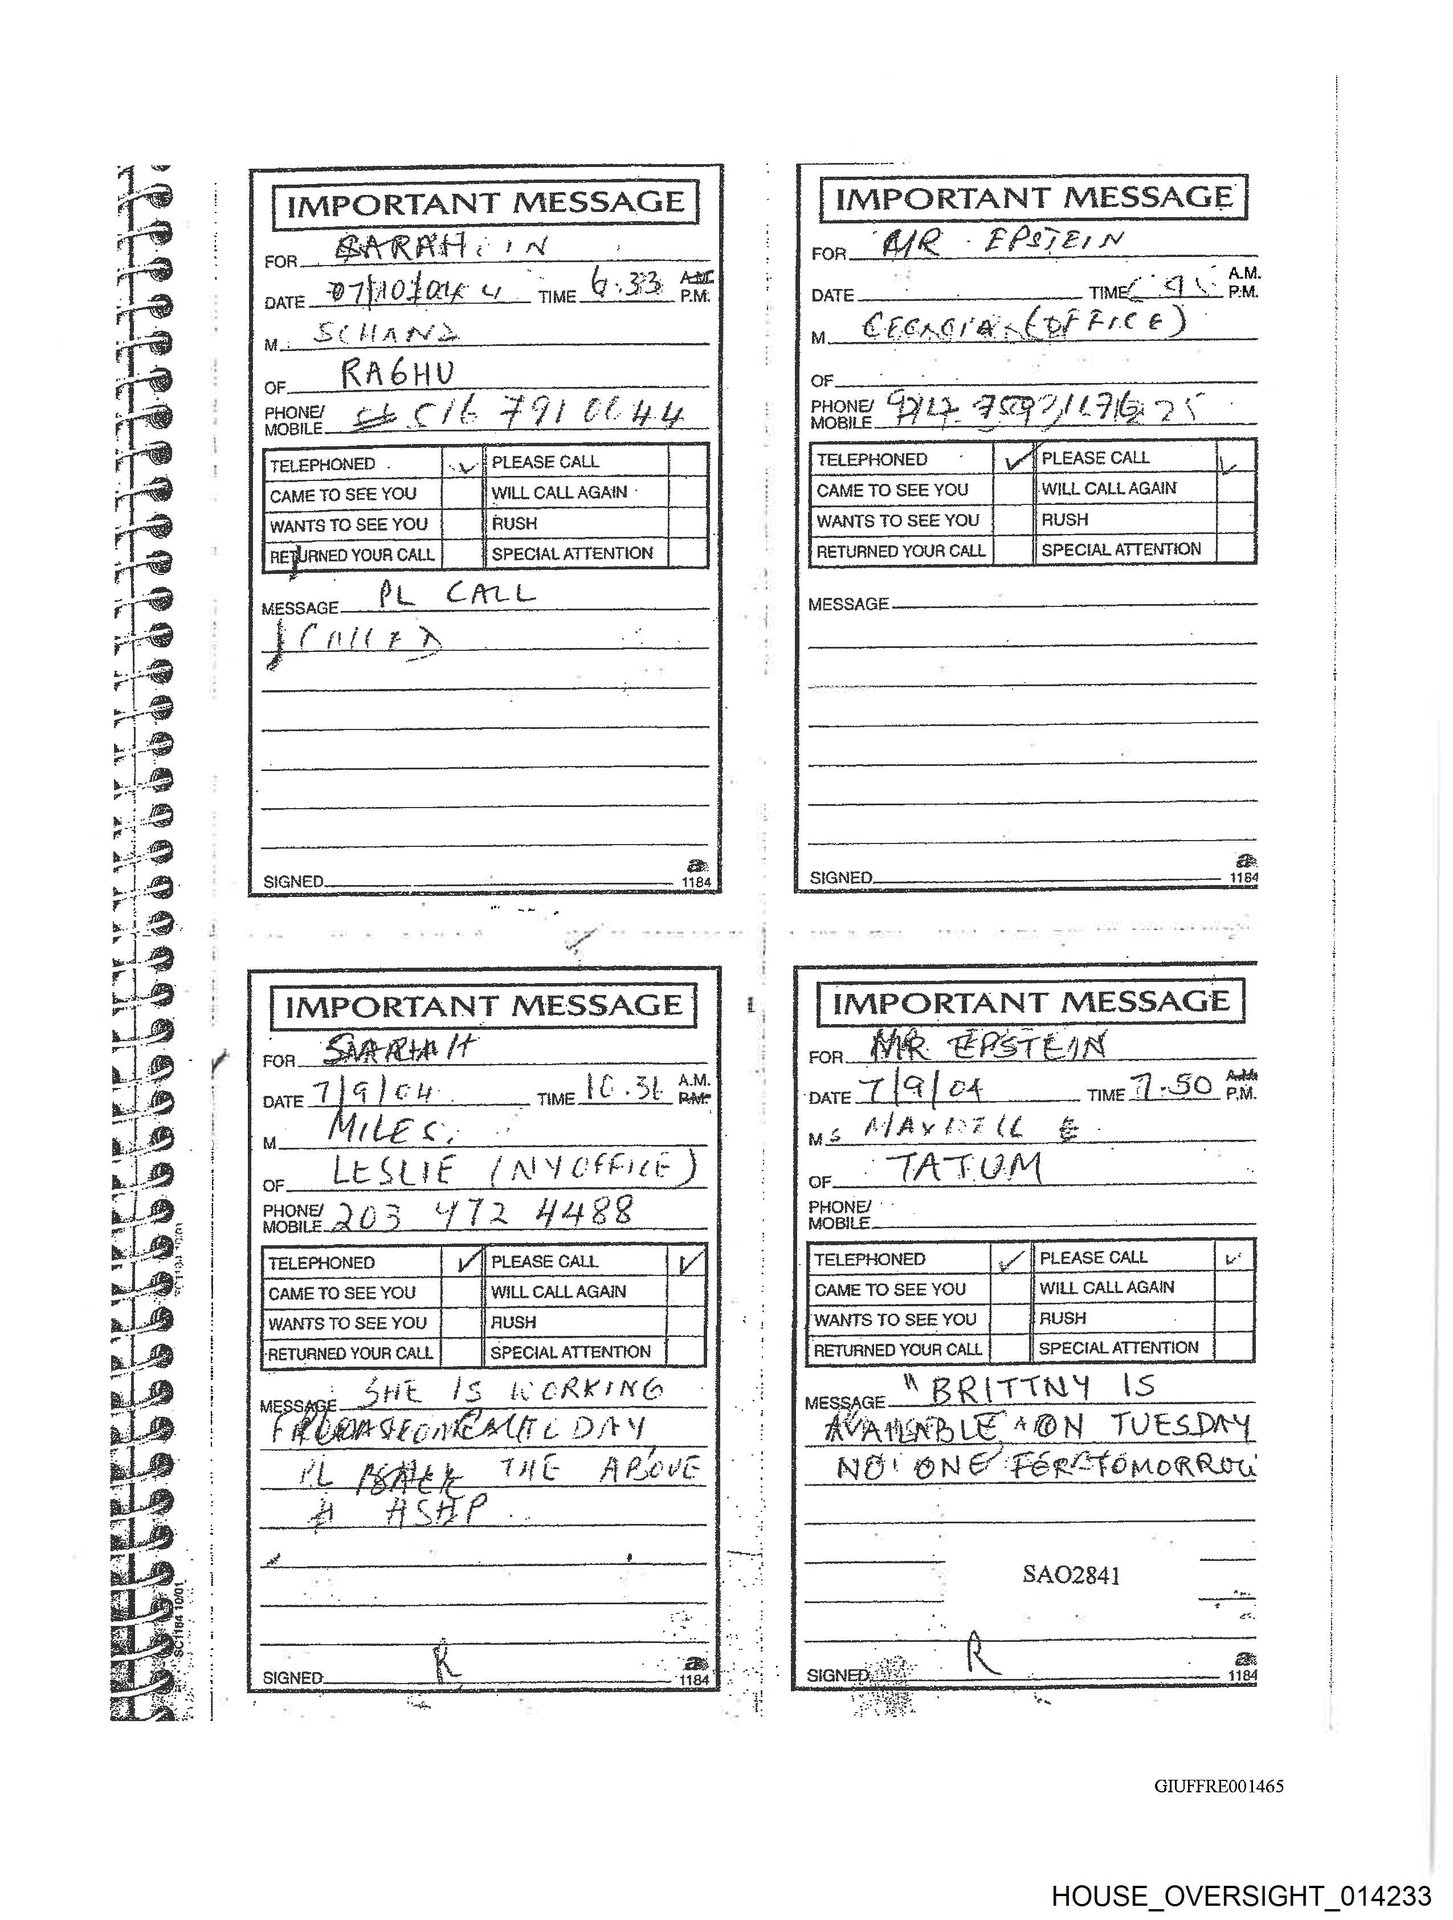 IMPORTANT MESSAGE
FOR SARAH
DATE 07/10/04 TIME 6.33 A.M. P.M.
M
OF RAGHU
PHONE/ MOBILE 516 791
TELEPHONED ✓ PLEASE CALL
CAME TO SEE YOU WILL CALL AGAIN
WANTS TO SEE YOU RUSH
RETURNED YOUR CALL SPECIAL ATTENTION
MESSAGE PL CALL
CALLED
SIGNED
a
1184
IMPORTANT MESSAGE
FOR MR EPSTEIN
DATE TIME A.M. P.M.
M (OFFICE)
OF
PHONE/ MOBILE
TELEPHONED ✓ PLEASE CALL ✓
CAME TO SEE YOU WILL CALL AGAIN
WANTS TO SEE YOU RUSH
RETURNED YOUR CALL SPECIAL ATTENTION
MESSAGE
SIGNED
a
1184
IMPORTANT MESSAGE
FOR SARAH
DATE 7/9/04 TIME 10.31 A.M. P.M.
M MILES.
OF LESLIE (NY OFFICE)
PHONE/ MOBILE 203 472 4488
TELEPHONED ✓ PLEASE CALL ✓
CAME TO SEE YOU WILL CALL AGAIN
WANTS TO SEE YOU RUSH
RETURNED YOUR CALL SPECIAL ATTENTION
MESSAGE SHE IS WORKING
DAY
PL THE ABOVE
# ASAP
SIGNED R
a
1184
IMPORTANT MESSAGE
FOR MR EPSTEIN
DATE 7/9/04 TIME 7.50 A.M. P.M.
MS MAXWELL
OF TATUM
PHONE/ MOBILE
TELEPHONED ✓ PLEASE CALL ✓
CAME TO SEE YOU WILL CALL AGAIN
WANTS TO SEE YOU RUSH
RETURNED YOUR CALL SPECIAL ATTENTION
MESSAGE "BRITTNY IS
AVAILABLE ON TUESDAY
NO ONE FOR TOMORROW
SAO2841
SIGNED R
a
1184
SC1184 10/01
GIUFFRE001465
HOUSE_OVERSIGHT_014233